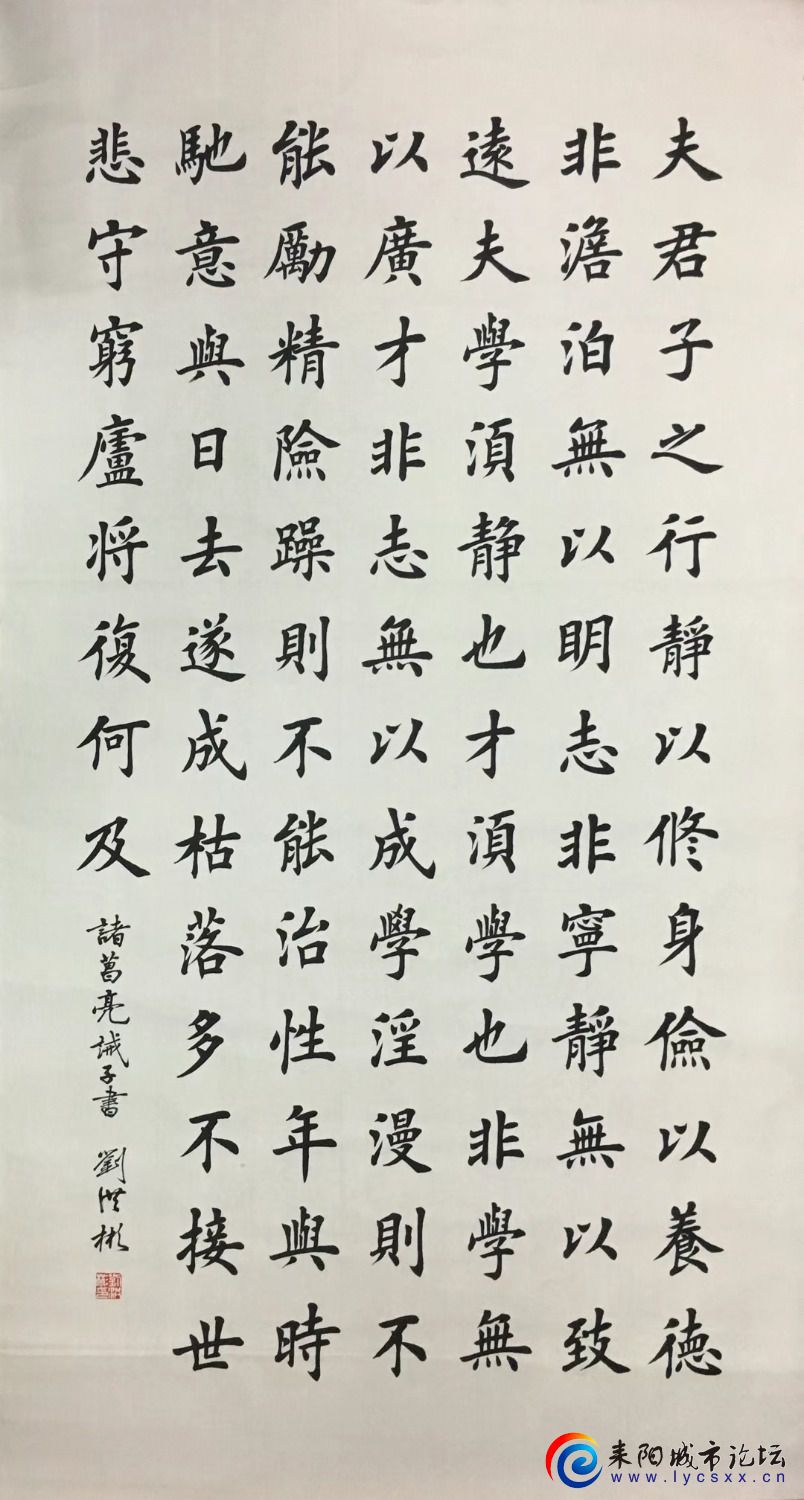 夫君子之行靜以修身儉以養德
非澹泊無以明志非寧靜無以致
遠夫學須靜也才須學也非學無
以廣才非志無以成學淫漫則不
能勵精險躁則不能治性年與時
馳意與日去遂成枯落多不接世
悲守窮廬將復何及
諸葛亮誡子書 劉洪彬
耒阳城市论坛
www.lycsxx.cn